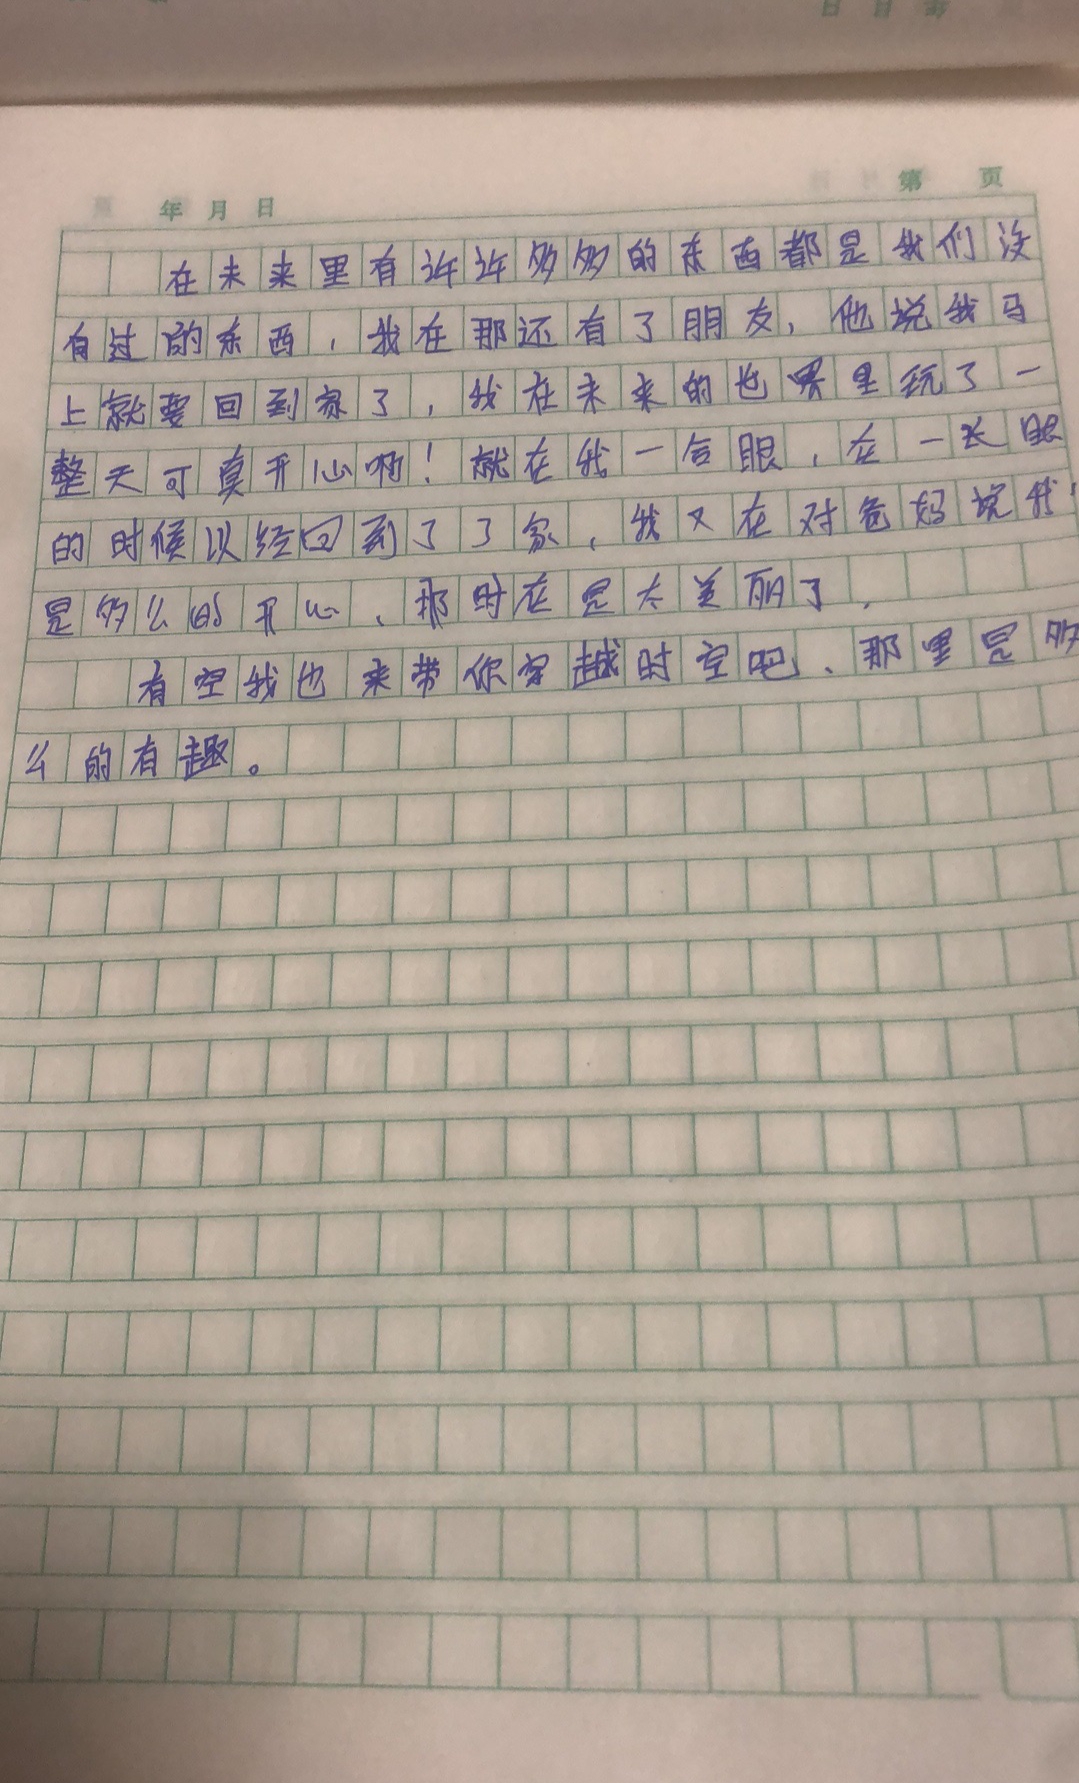 年 月 日 第 页
在未来里有许许多多的东西都是我们没
有过的东西,我在那还有了朋友,他说我马
上就要回到家了,我在未来的也界里玩了一
整天可真开心啊!就在我一合眼,在一长眼
的时候以经回到了了家,我又在对爸妈说我
是多么的开心、那时在是太美丽了.
有空我也来带你穿越时空吧、那里是多
么的有趣。